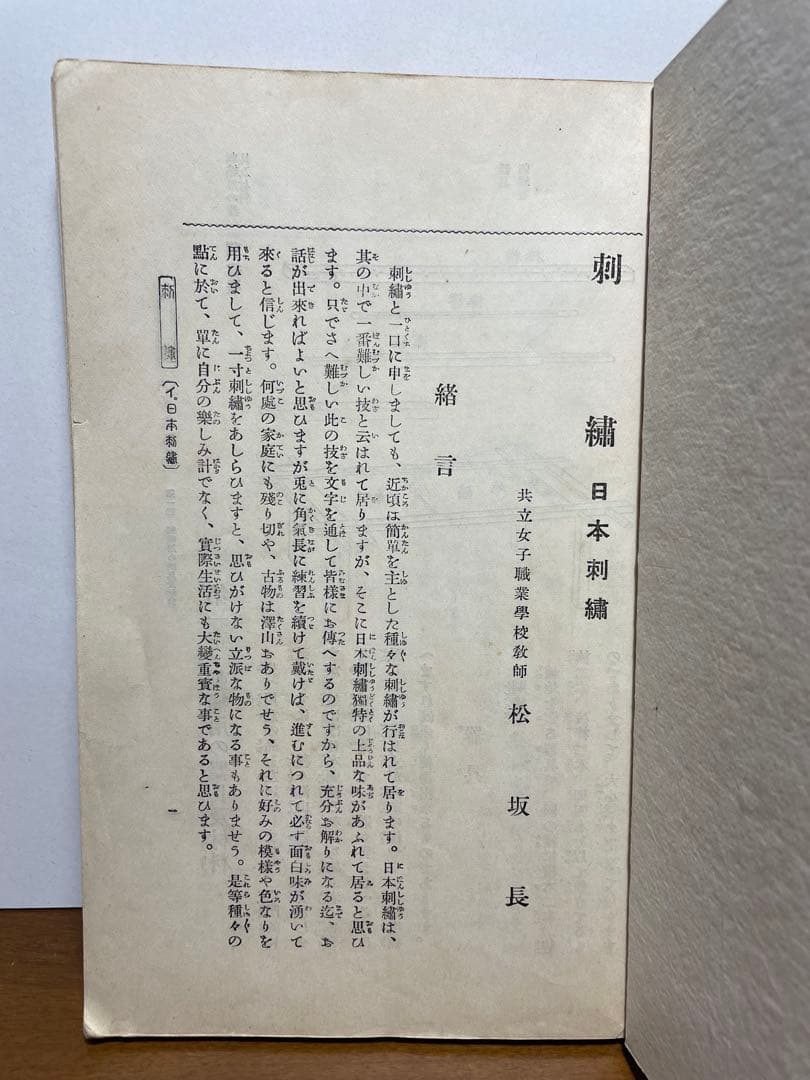 刺繡 日本刺繡
共立女子職業學校敎師 松坂長
緖言
刺繡と一口に申しましても、近頃は簡單を主とした種々な刺繡が行はれて居ります。日本刺繡は、
其の中で一番難しい技と云はれて居りますが、そこに日本刺繡獨特の上品な味があふれて居ると思ひ
ます。只でさへ難しい此の技を文字を通して皆樣にお傳へするのですから、充分お解りになる迄、お
話が出來ればよいと思ひますが兎に角氣長に練習を續けて戴けば、進むにつれて必ず面白味が湧いて
來ると信じます。何處の家庭にも殘り切や、古物は澤山おありでせう、それに好みの模樣や色なりを
用ひまして、一寸刺繡をあしらひますと、思ひがけない立派な物になる事もありませう。是等種々の
點に於て、單に自分の樂しみ計でなく、實際生活にも大變重寶な事であると思ひます。
刺繡 (イ。日本刺繡)
一